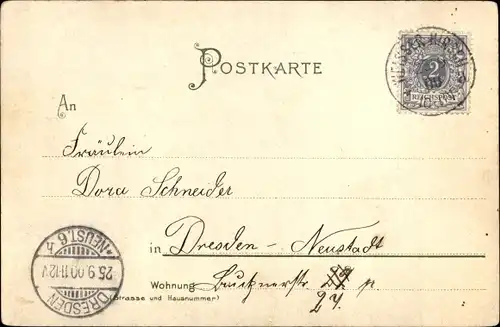 WEISSER HIRSCH
POSTKARTE
2
REICHSPOST
An
Fräulein
Dora Schneider
in Dresden-Neustadt
Wohnung p.
(Strasse und Hausnummer) 27.
*NEUST. 6 h
25.9.00.11-12V
DRESDEN